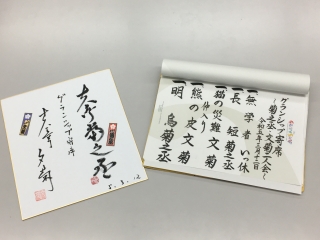 グランシップ寄席
~菊之丞 文菊 二人会~
令和五年三月十二日
一、無学者 いっ休
一、長短 菊之丞
一、猫の災難 文菊
仲入り
一、熊の皮 文菊
一、明烏 菊之丞
古今亭菊之丞
グランシップ寄席
古今亭文菊
5.3.12